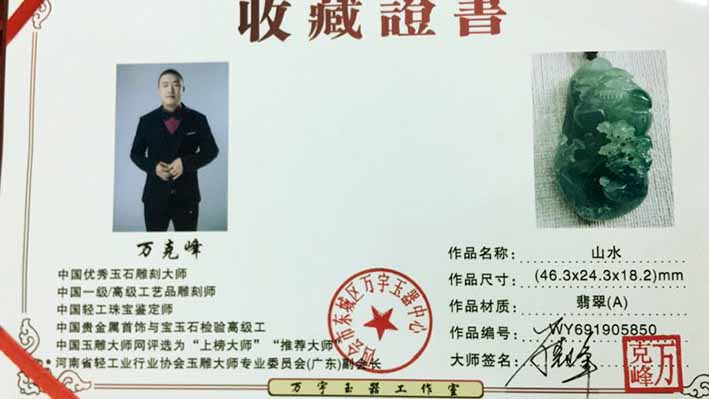 收藏證書
万克峰
中国优秀玉石雕刻大师
中国一级/高级工艺品雕刻师
中国轻工珠宝鉴定师
中国贵金属首饰与宝玉石检验高级工
中国玉雕大师网评选为“上榜大师”“推荐大师”
河南省轻工业行业协会玉雕大师专业委员会(广东)副会长
四会市东城区万宇玉器中心
作品名称: 山水
作品尺寸: (46.3x24.3x18.2)mm
作品材质: 翡翠(A)
作品编号: WY691905850
大师签名: 万克峰
万克峰
万宇玉器工作室